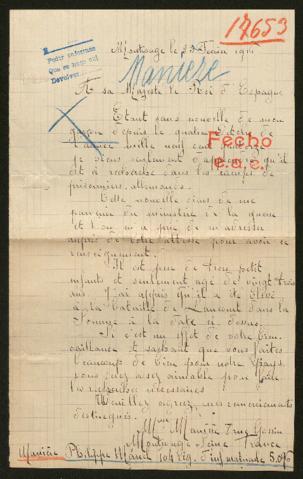 17653
Pedir informes
Que se haga así
Devolver
Montrouge le 8 Février 1915
Manière
A sa Majesté le Roi d'Espagne
Etant sans nouvelle de mon
garçon depuis le quatre
l'année mille neuf cent
je viens
est à rechercher dans les camps de
prisonniers allemands.
Cette nouvelle viens de me
parvenir du ministre de la guerre
et l'on m'a prié de m'adresser
auprès de votre altesse pour avoir ce
renseignement.
Il est père de trois petit
enfants et seulement agé de vingt trois
ans. J'ai appris qu'il a été blessé
à la bataille de dans la
Somme à la date ci dessus.
Si c'est un effet de votre bien-
veillance et sachant que vous faites
beaucoup de bien pour notre Pays,
vous serez assez aimable pour
les recherches nécessaires
Veuillez agréez, mes remerciements
distingués.
Mme Manière
Montrouge Seine France
Fecho
Manière Philippe 104 Rég. d'Infanterie 5